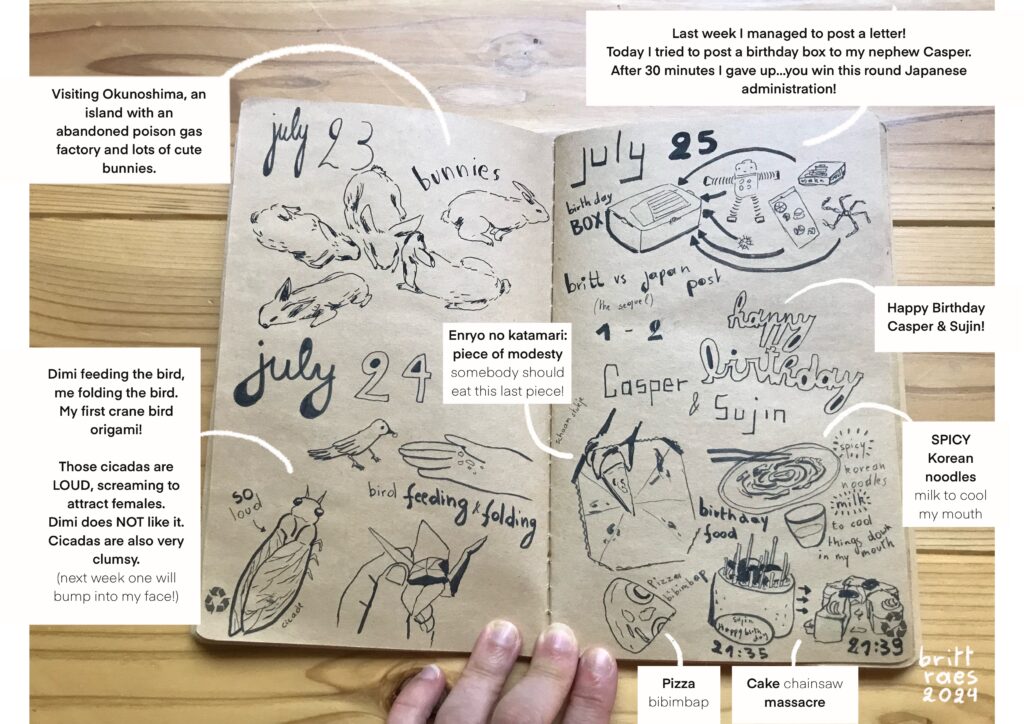 Visiting Okunoshima, an
island with an
abandoned poison gas
factory and lots of cute
bunnies.
july 23
bunnies
Dimi feeding the bird,
me folding the bird.
My first crane bird
origami!
Those cicadas are
LOUD, screaming to
attract females.
Dimi does NOT like it.
Cicadas are also very
clumsy.
(next week one will
bump into my face!)
july 24
bird feeding & folding
so
loud
cicade
Last week I managed to post a letter!
Today I tried to post a birthday box to my nephew Casper.
After 30 minutes I gave up...you win this round Japanese
administration!
july 25
birthday
BOX
britt vs japan
post
(the sequel)
1 - 2
Happy Birthday
Casper & Sujin!
happy
birthday
Casper
& Sujin
Enryo no katamari:
piece of modesty
somebody should
eat this last piece!
SPICY
Korean
noodles
milk to cool
my mouth
spicy
korean
noodles
milk
to cool
things down
in my mouth
birthday
food
pizza
bibimbap
Sujin
Happy birth
day
21:35
21:39
Pizza
bibimbap
Cake chainsaw
massacre
britt
raes
2024